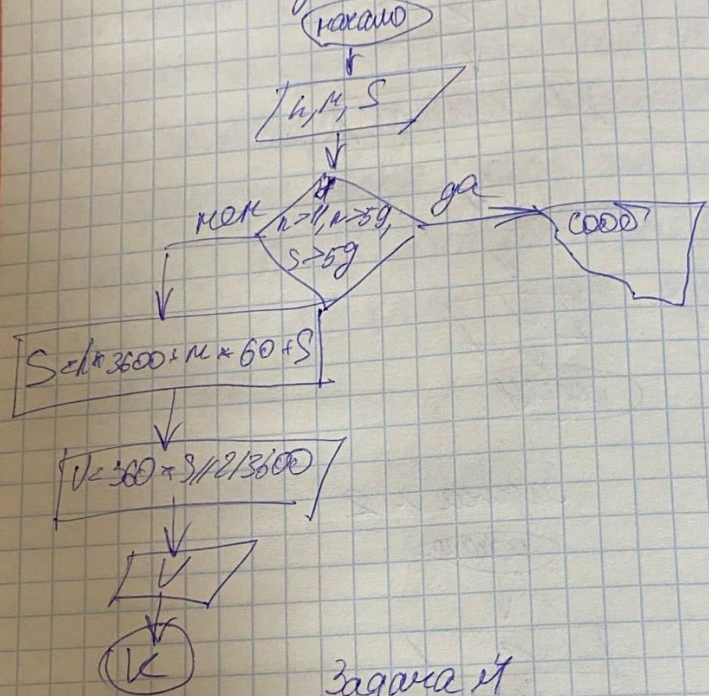 начало
h, м, S
да
h>11, м>59,
S>59
S=h*3600+м*60+S
V=360*S/12/3600
V
К
Задача 4